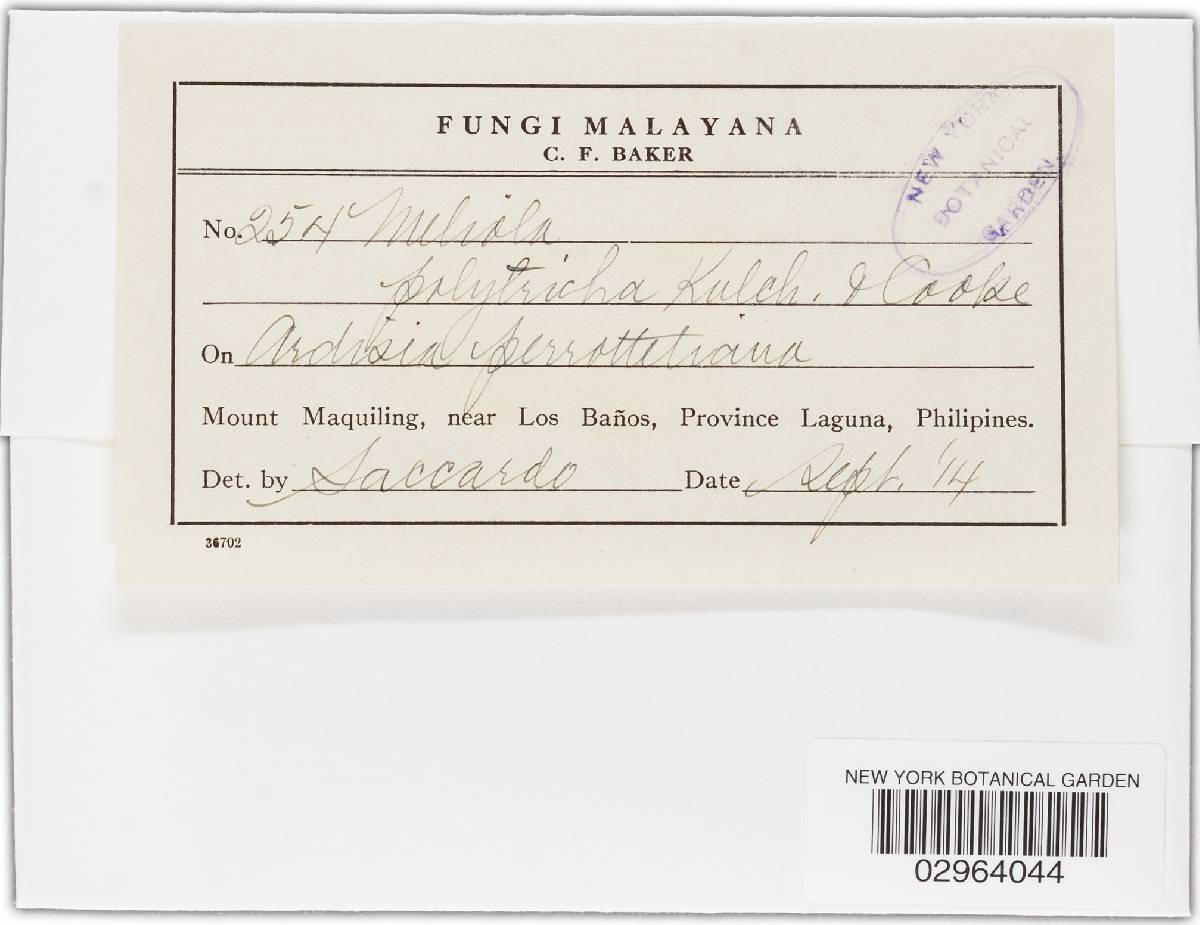 FUNGI MALAYANA
C. F. BAKER
NEW YORK
BOTANICAL
GARDEN
No. 254 Meliola
polytricha Kalch. & Cooke
On Ardisia perrottetiana
Mount Maquiling, near Los Baños, Province Laguna, Philipines.
Det. by Saccardo Date Sept. '14
36702
NEW YORK BOTANICAL GARDEN
02964044